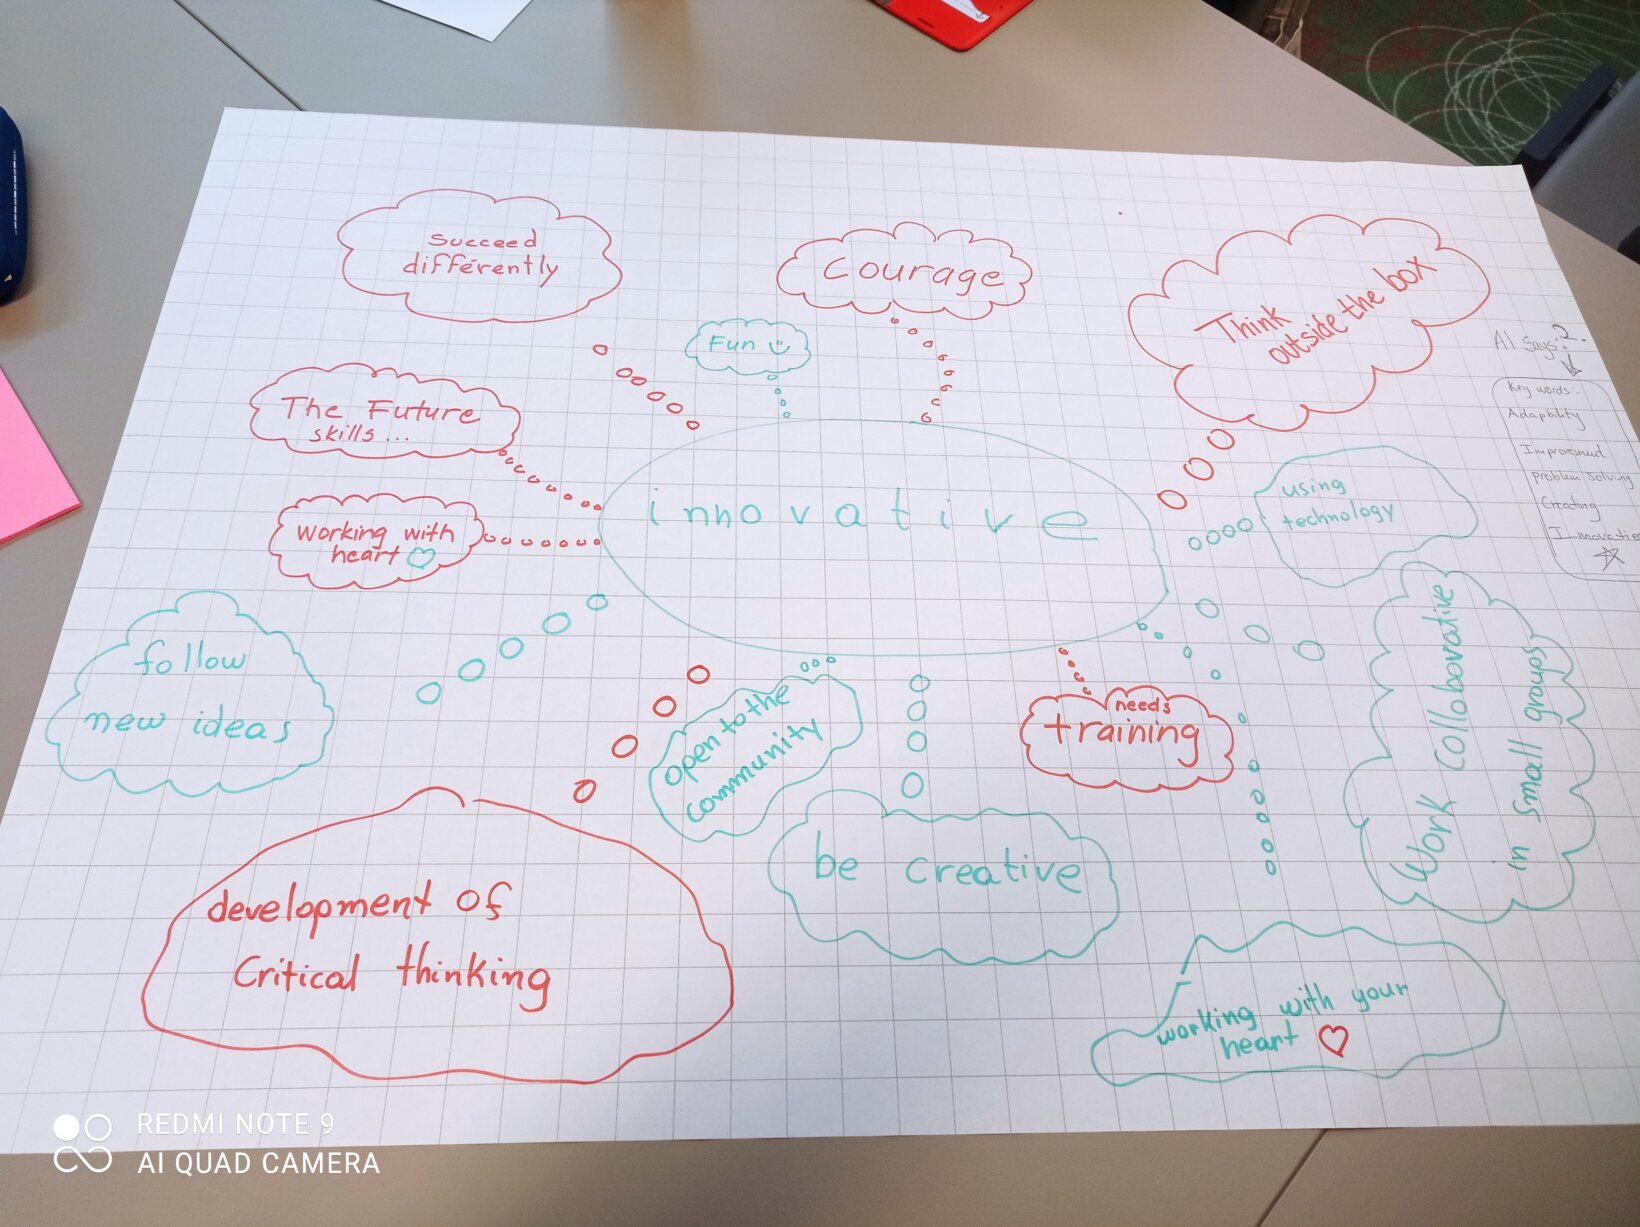 succeed
différently
Courage
Think
outside the box
Fun
The Future
skills...
AI says:
2.
Key words:
Adaptability
Improvement
problem solving
Creating
innovative
using
technology
working with
heart
follow
new ideas
open to the
community
needs
training
Work Collaborative
in small groups
be creative
development of
Critical thinking
working with your
heart
REDMI NOTE 9
AI QUAD CAMERA